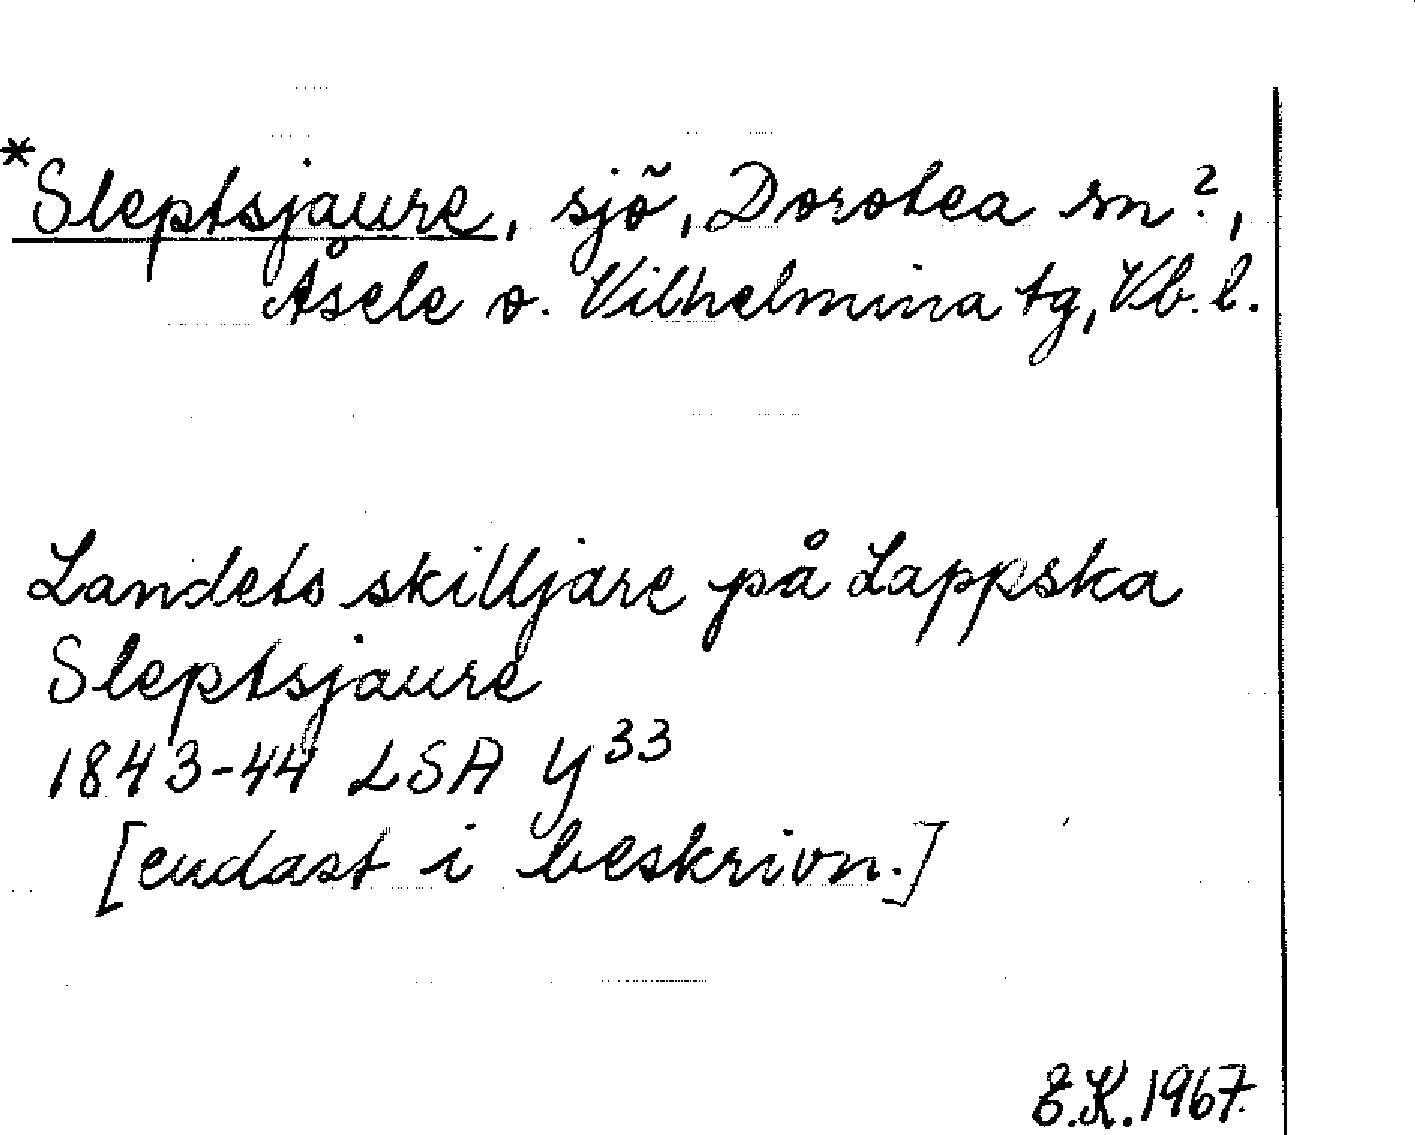 *Sleptsjaure, sjö, Dorotea sn?,
Åsele o. Vilhelmina tg, Vb. l.
Landets skilljare på Lappska
Sleptsjaure
1843-44 LSA Y³³
[endast i beskrivn.]
E.K. 1967